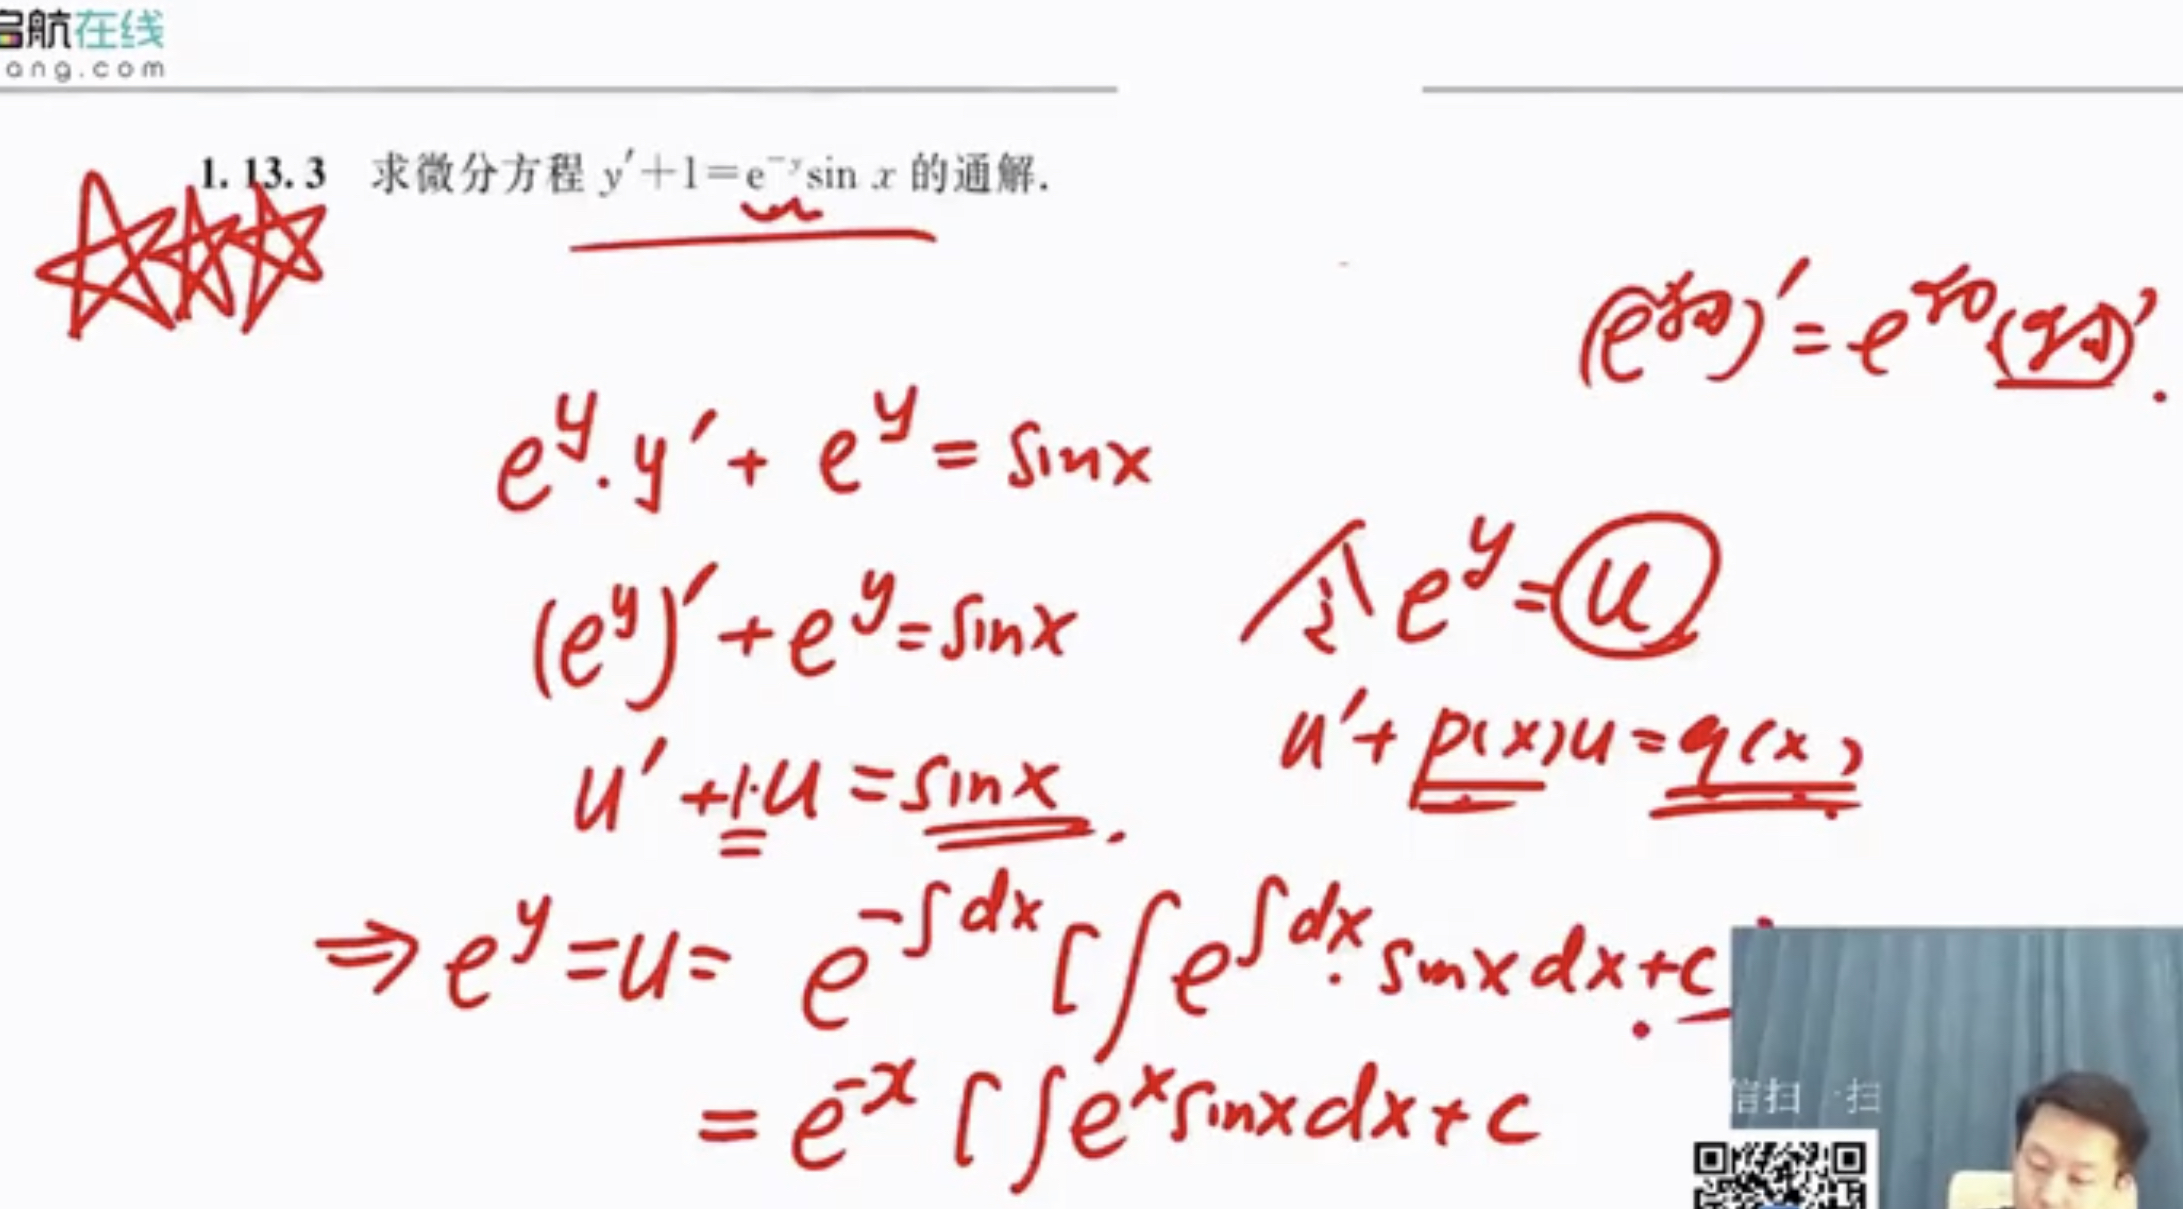 启航在线
ang.com
1.13.3 求微分方程 y′+1=e⁻ʸsin x 的通解.
(e^{f(x)})′=e^{f(x)}(f(x))′.
e^y·y′+e^y=sinx
(e^y)′+e^y=sinx
令e^y=u
u′+1·u=sinx.
u′+p(x)u=q(x)
⇒e^y=u=e^{-∫dx}[∫e^{∫dx}·sinxdx+c
=e^{-x}[∫e^x sinxdx+c
信扫一扫